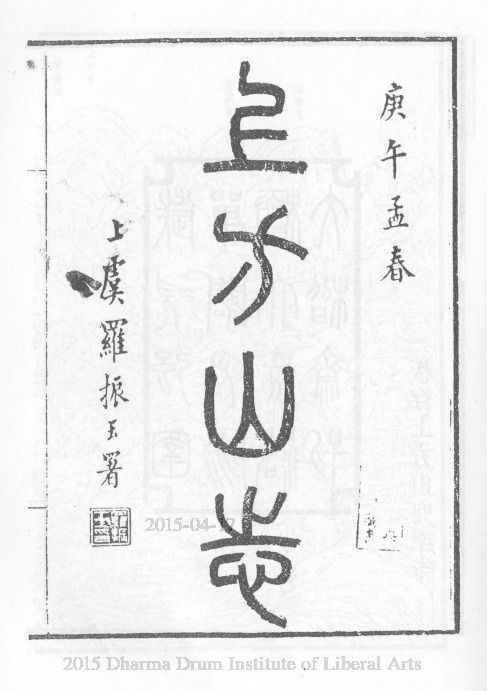 庚午孟春
上方山志
上虞羅振玉署
2015-04-17
2015 Dharma Drum Institute of Liberal Arts